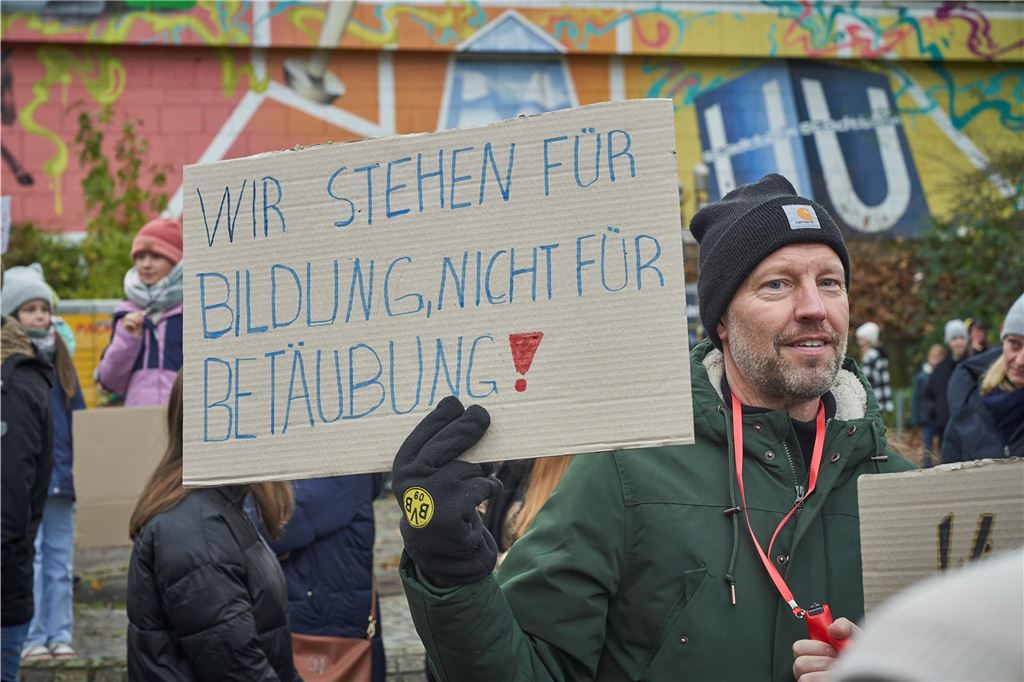 WIR STEHEN FÜR
BILDUNG, NICHT FÜR
BETÄUBUNG!
carhartt
BVB
09
HU